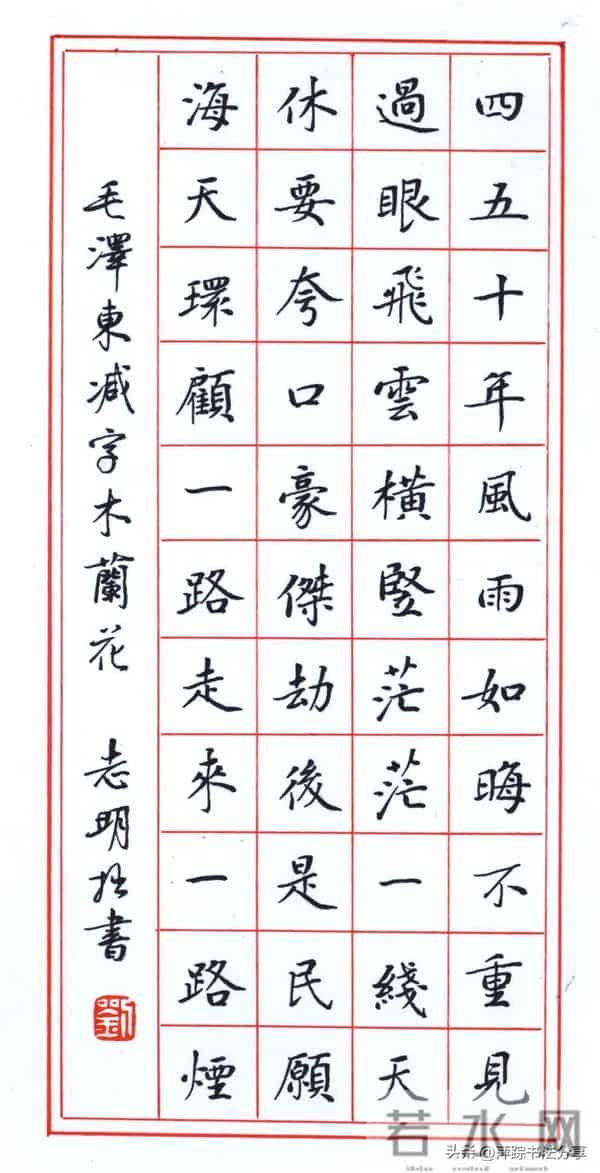 四五十年風雨如晦不重見
過眼飛雲橫竪茫茫一綫天
休要夸口豪傑劫後是民願
海天環顧一路走來一路煙
毛澤東减字木蘭花 志明拙書
劉
若水网
头条@萍踪书法分享